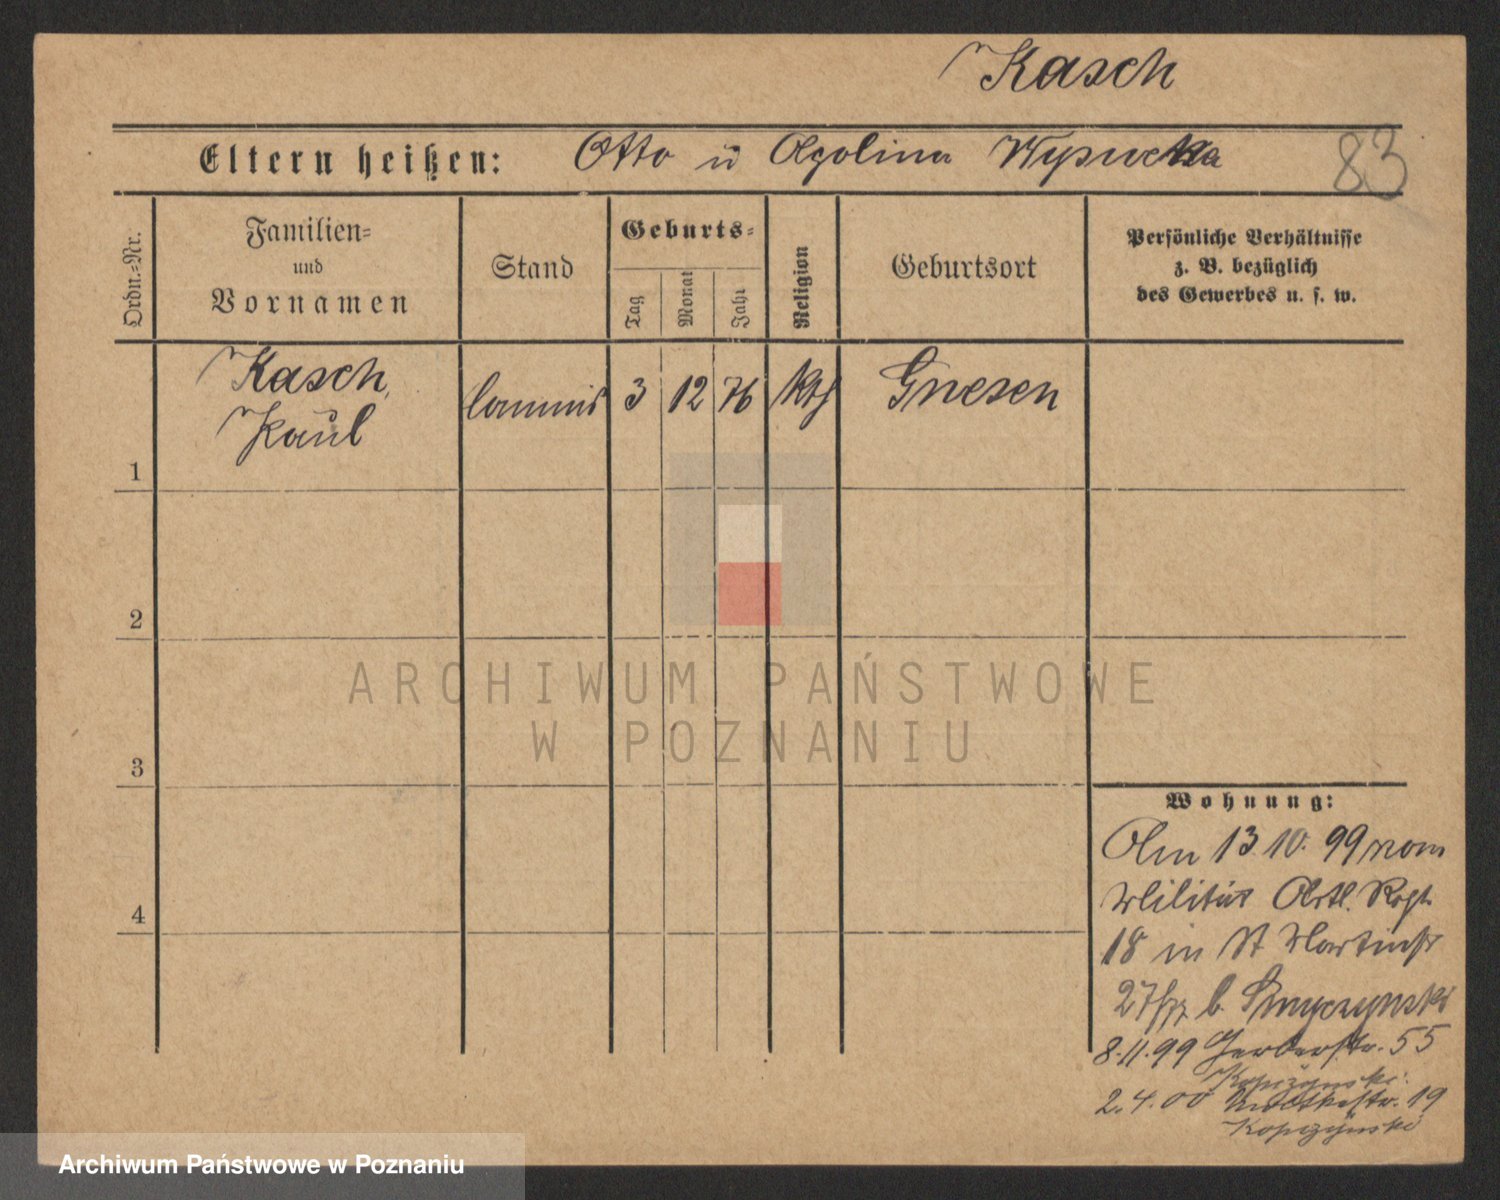 Kasch
Eltern heißen: Otto u Apolina Wysocka
83
Ordn.=Nr.
Familien=
und
Vornamen
Stand
Geburts=
Tag
Monat
Jahr
Religion
Geburtsort
Persönliche Verhältnisse
z. B. bezüglich
des Gewerbes u. s. w.
1
Kasch,
Paul
Commis
3
12
76
kth
Gnesen
2
3
4
Wohnung:
Am 13.10.99 vom
Militär Artl. Rgt
18 in St Martinstr
27 b.
8.11.99 Gerberstr. 55
Kopczynski
2.4.00 Moltkestr. 19
Kopczynski
ARCHIWUM PAŃSTWOWE
W POZNANIU
Archiwum Państwowe w Poznaniu